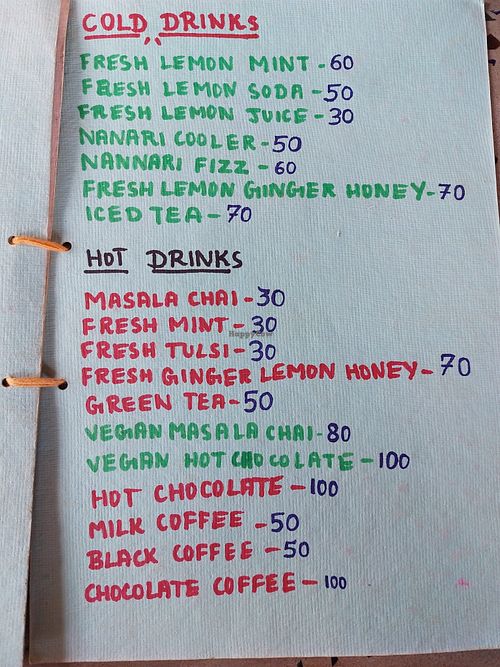 COLD DRINKS
FRESH LEMON MINT - 60
FRESH LEMON SODA - 50
FRESH LEMON JUICE - 30
NANARI COOLER - 50
NANNARI FIZZ - 60
FRESH LEMON GINGER HONEY - 70
ICED TEA - 70
HOT DRINKS
MASALA CHAI - 30
FRESH MINT - 30
FRESH TULSI - 30
FRESH GINGER LEMON HONEY - 70
GREEN TEA - 50
VEGAN MASALA CHAI - 80
VEGAN HOT CHOCOLATE - 100
HOT CHOCOLATE - 100
MILK COFFEE - 50
BLACK COFFEE - 50
CHOCOLATE COFFEE - 100
HappyCow